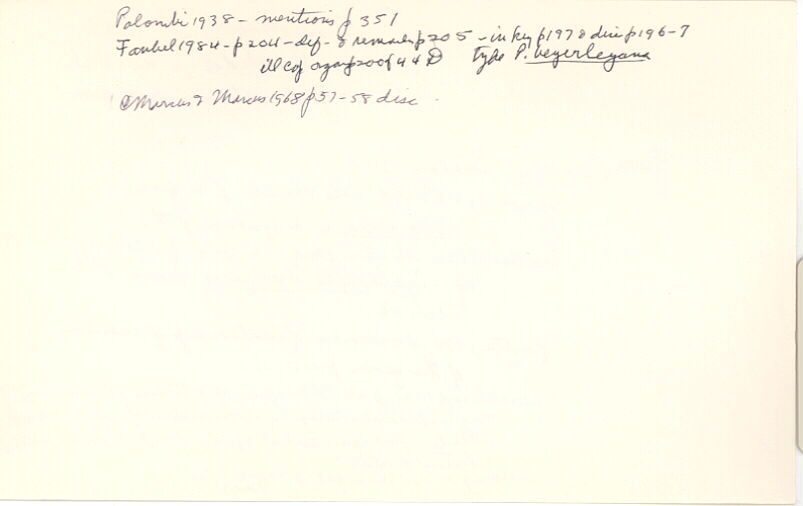 Palombi 1938 - mentions p 351
Faubel 1984 - p 204 - def - & remarks p 205 - in key p 197 & disc p 196-7
ill cop organ p 200 f 44 D type P. beyerleyana
Marcus & Marcus 1968 p 57-58 disc.